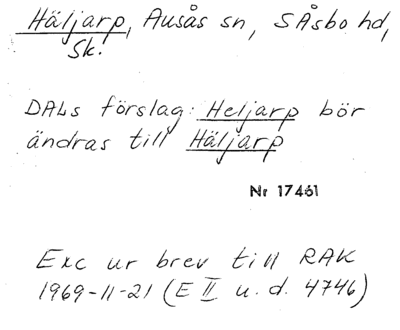 Häljarp, Ausås sn, SÅsbo hd,
Sk.
DALs förslag: Heljarp bör
ändras till Häljarp
Nr 17461
Exc ur brev till RAK
1969-11-21 (E II u.d. 4746)